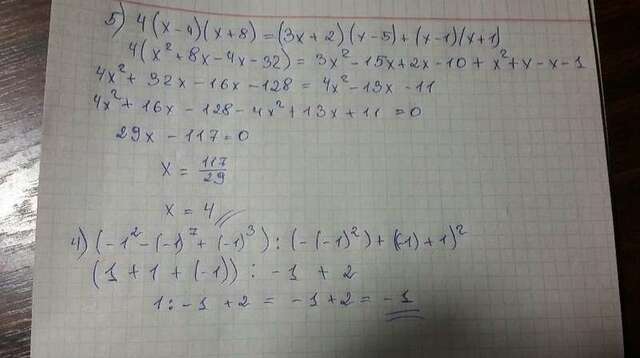 5) 4(x-4)(x+8)=(3x+2)(x-5)+(x-1)(x+1)
4(x²+8x-4x-32)=3x²-15x+2x-10+x²+x-x-1
4x²+32x-16x-128=4x²-13x-11
4x²+16x-128-4x²+13x+11=0
29x-117=0
x=117/29
x=4
4) (-1²-(-1)⁷+(-1)³):(-(-1)²)+(-1)+1)²
(1+1+(-1)):-1+2
1:-1+2=-1+2=-1